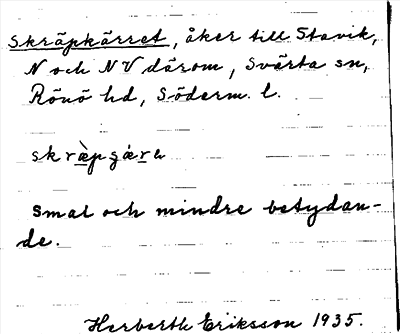 Skräpkärret, åker till Stavik,
N och NV därom, Svärta sn,
Rönö hd, Söderm. l.
smal och mindre betydan-
de.
Herberth Eriksson 1935.